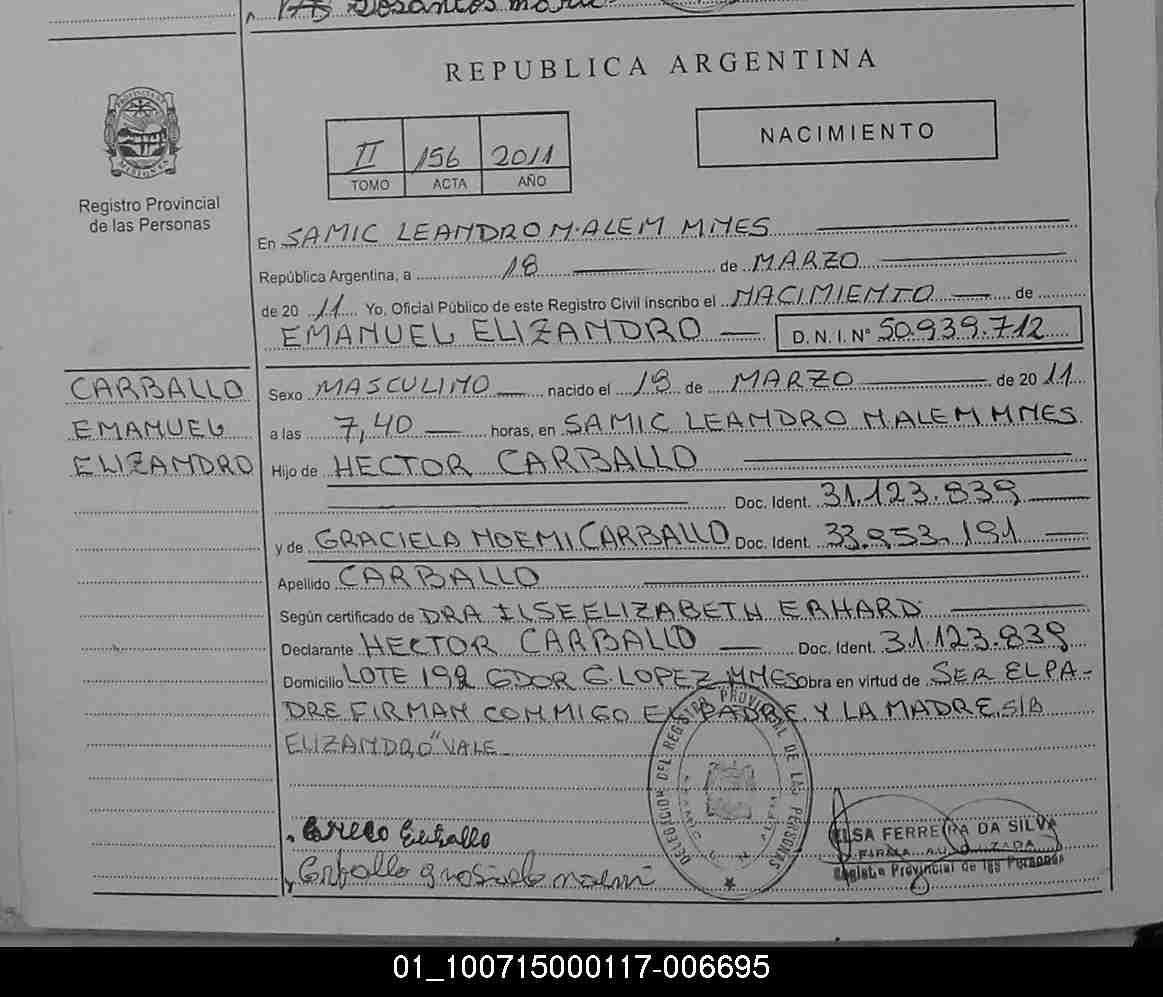 REPUBLICA ARGENTINA
NACIMIENTO
II 156 2011
TOMO ACTA AÑO
Registro Provincial
de las Personas
En SAMIC LEANDRO N. ALEM MNES
República Argentina, a 18 de MARZO
de 20 11 Yo, Oficial Público de este Registro Civil inscribo el NACIMIENTO de
EMANUEL ELIZANDRO D. N. I. N° 50.939.712
CARBALLO
EMANUEL
ELIZANDRO
Sexo MASCULINO nacido el 18 de MARZO de 20 11
a las 7,40 horas, en SAMIC LEANDRO N ALEM MNES
Hijo de HECTOR CARBALLO
Doc. Ident. 31.123.839
y de GRACIELA NOEMI CARBALLO Doc. Ident. 33.953.191
Apellido CARBALLO
Según certificado de DRA ILSE ELIZABETH ERHARD
Declarante HECTOR CARBALLO Doc. Ident. 31.123.839
Domicilio LOTE 192 GDOR G. LOPEZ MNES Obra en virtud de SER EL PA-
DRE FIRMAN CONMIGO EL PADRE Y LA MADRE. S/B
ELIZANDRO" VALE
DELEGACION DEL REGISTRO PROVINCIAL DE LAS PERSONAS
ELSA FERREIRA DA SILVA
FIRMA AUTORIZADA
Registro Provincial de las Personas
01_100715000117-006695